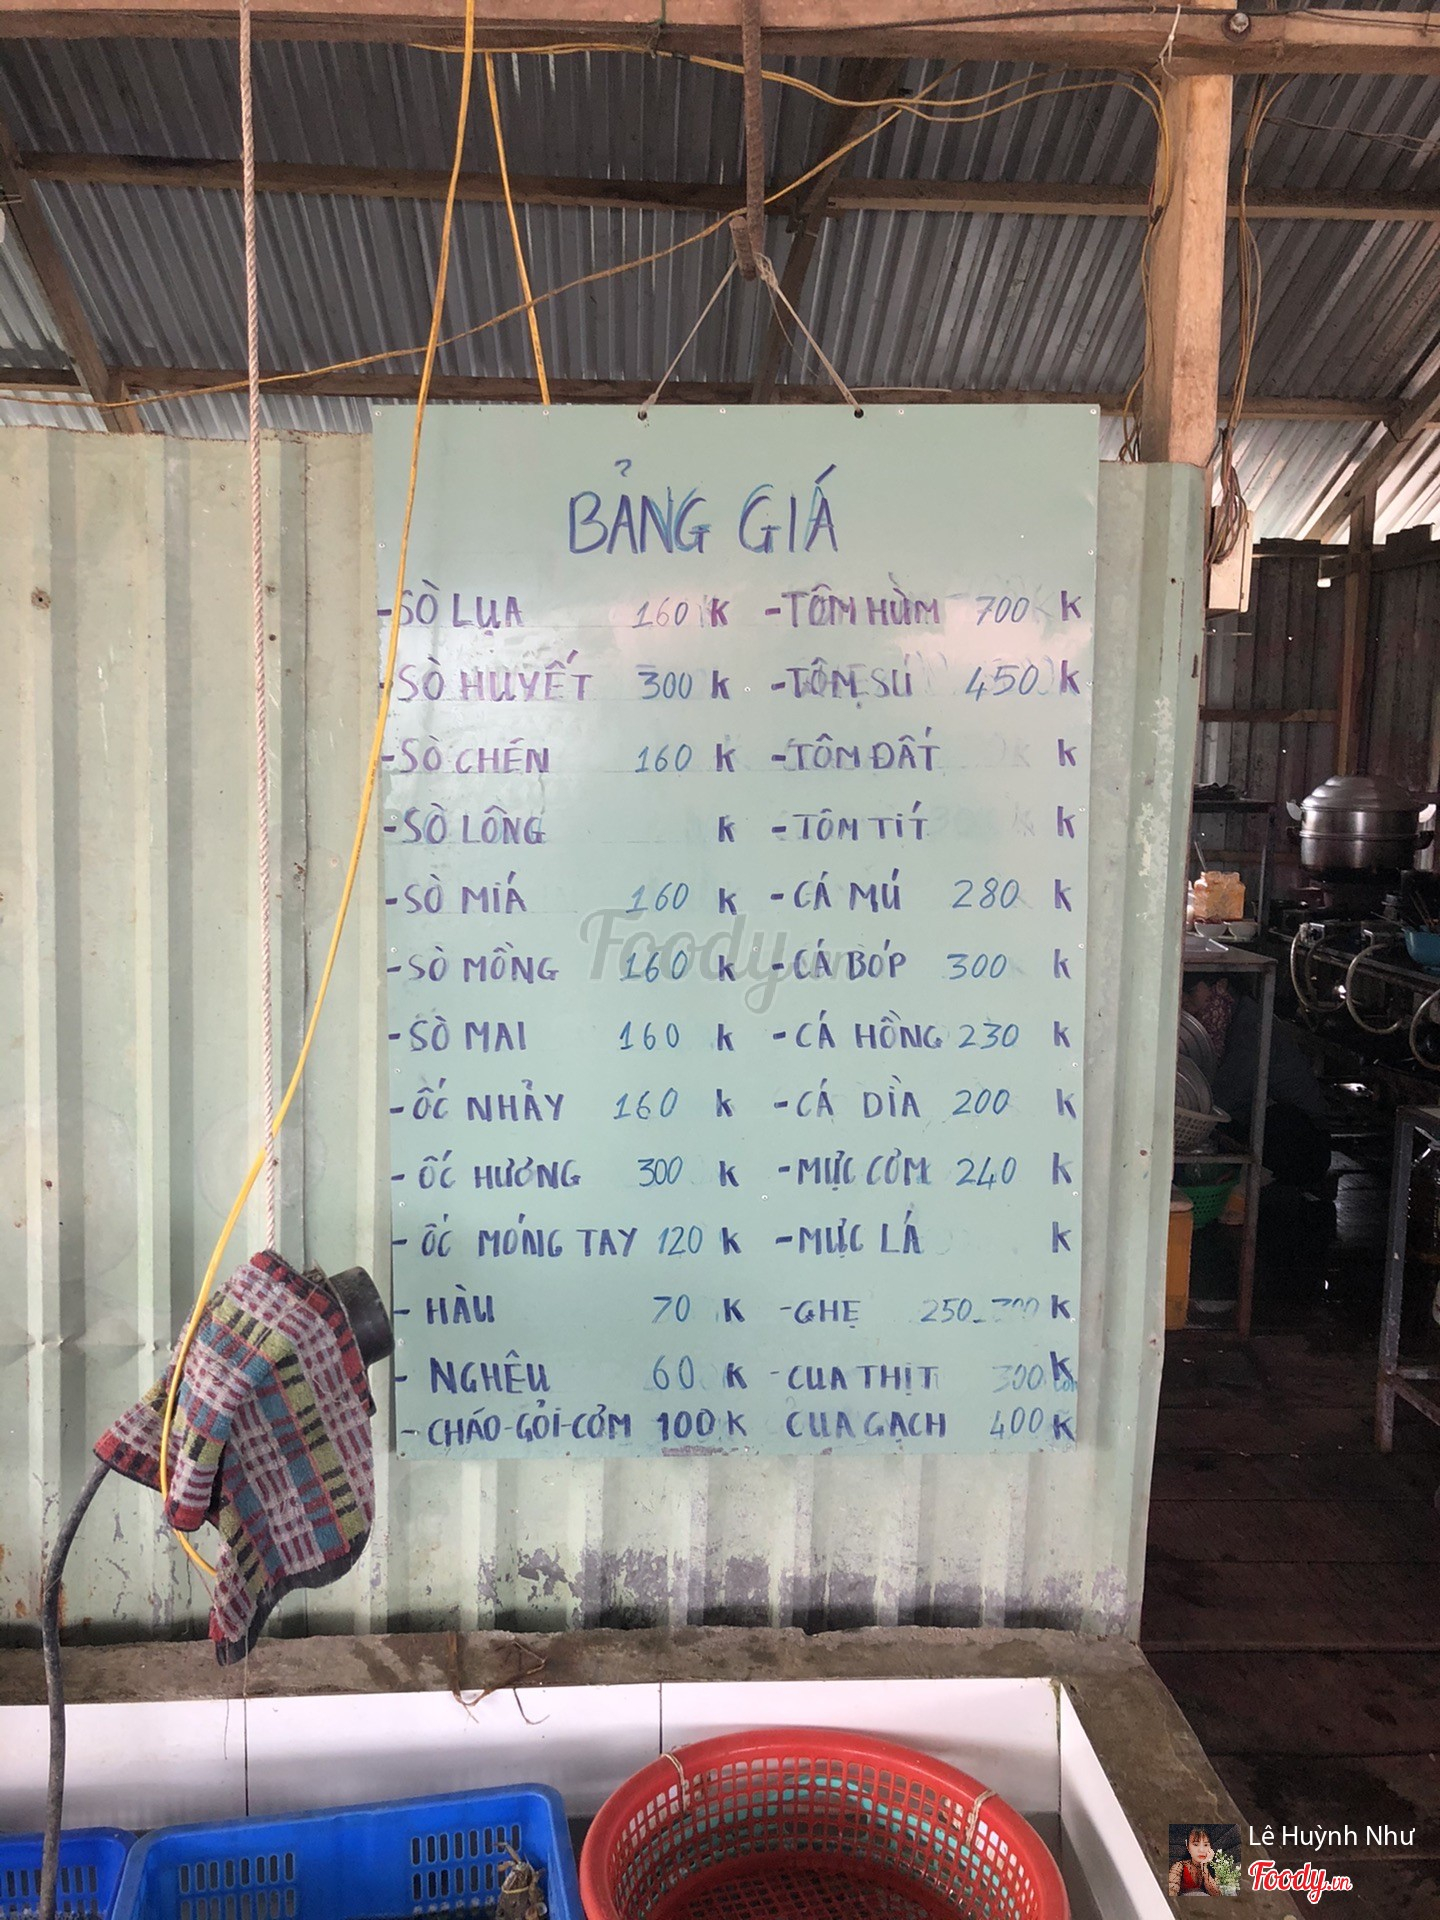 BẢNG GIÁ
- SÒ LỤA 160 K
- SÒ HUYẾT 300 K
- SÒ CHÉN 160 K
- SÒ LÔNG K
- SÒ MIÁ 160 K
- SÒ MỒNG 160 K
- SÒ MAI 160 K
- ỐC NHẢY 160 K
- ỐC HƯƠNG 300 K
- ỐC MÓNG TAY 120 K
- HÀU 70 K
- NGHÊU 60 K
- CHÁO-GỎI-CƠM 100 K
- TÔM HÙM 700 K
- TÔM SÚ 450 K
- TÔM ĐẤT K
- TÔM TÍT K
- CÁ MÚ 280 K
- CÁ BÓP 300 K
- CÁ HỒNG 230 K
- CÁ DÌA 200 K
- MỰC CƠM 240 K
- MỰC LÁ K
- GHẸ 250_300 K
- CUA THỊT 300 K
CUA GẠCH 400 K
Foody.vn
Lê Huỳnh Như
Foody.vn